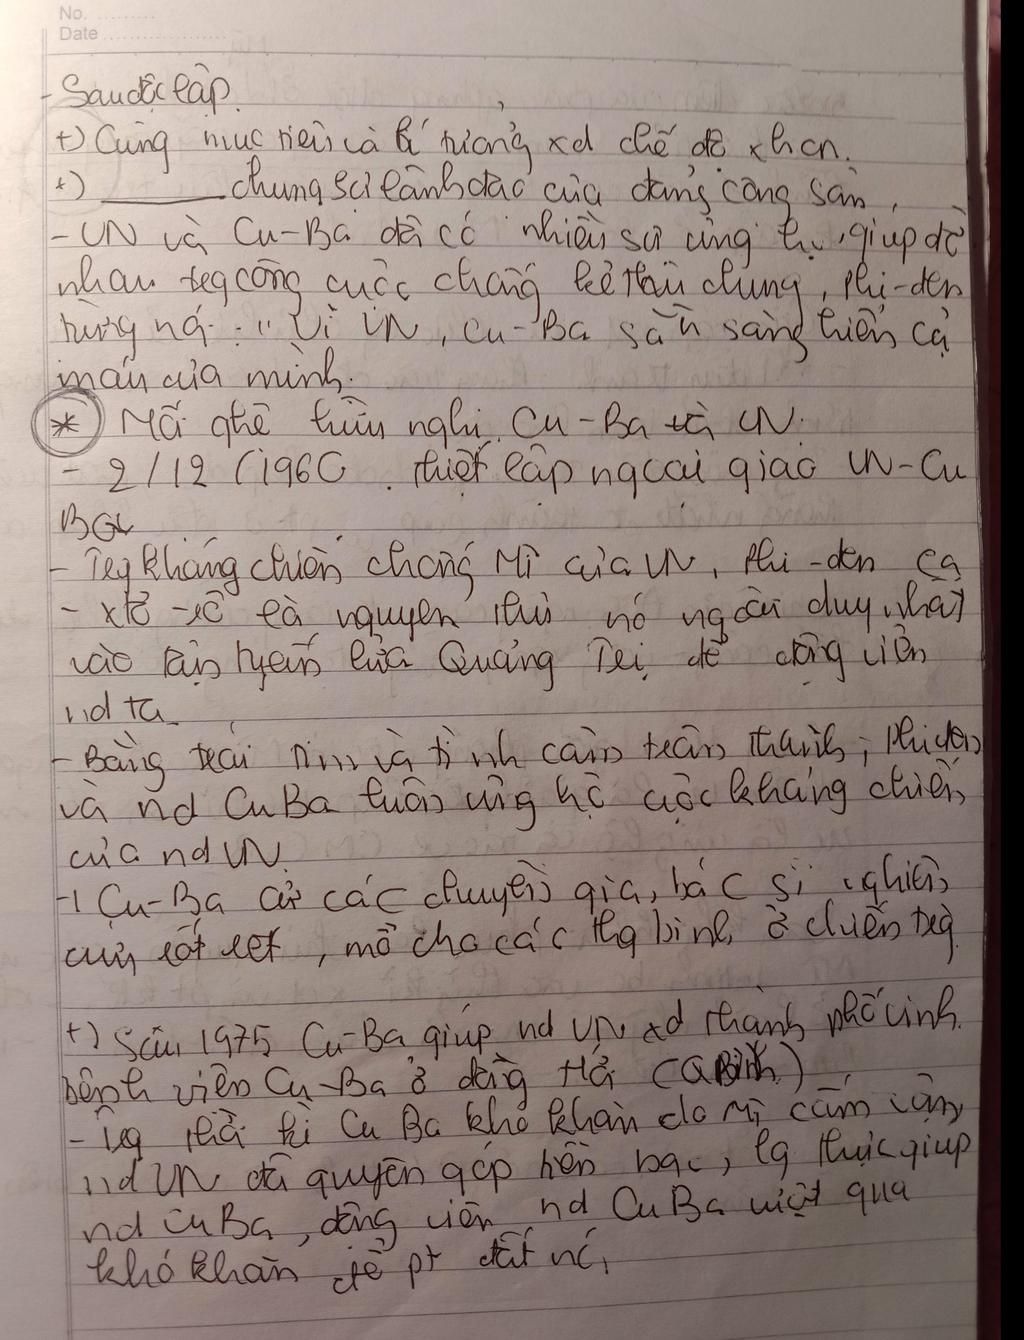 No. .........
Date ..................
- Sau độc lập.
+) Cùng mục tiêu và lí tưởng xd chế độ xhcn.
+) ______ chung sự lãnh đạo của đảng cộng sản,
- VN và Cu-Ba đã có nhiều sự ủng hộ, giúp đỡ
nhau trg công cuộc chống kẻ thù chung, Phi-den
từng nói: "Vì VN, Cu-Ba sẵn sàng hiến cả
máu của mình.
* Mối qhệ hữu nghị Cu-Ba và VN.
- 2/12/1960. thiết lập ngoại giao VN-Cu
Ba
- Trg kháng chiến chống Mĩ của VN, Phi-den Ca
- xtơ-rô là nguyên thủ nc ngoài duy nhất
vào tận tuyến lửa Quảng Trị để động viên
nd ta
- Bằng trái tim và tình cảm trân thành, Phi đen
và nd CuBa luôn ủng hộ cuộc kháng chiến
của nd VN.
- Cu-Ba cử các chuyên gia, bác sĩ nghiên
cứu sốt rét, mổ cho các thg binh ở chiến trg
+) Sau 1975 Cu-Ba giúp nd VN xd thành phố vinh.
bệnh viện Cu-Ba ở đồng Hới (QBình)
- Trg thời kì Cu Ba khó khăn do Mĩ cấm vận,
nd VN đã quyên góp tiền bạc, lg thực giúp
nd CuBa, động viên nd CuBa vượt qua
khó khăn để pt đất nc,